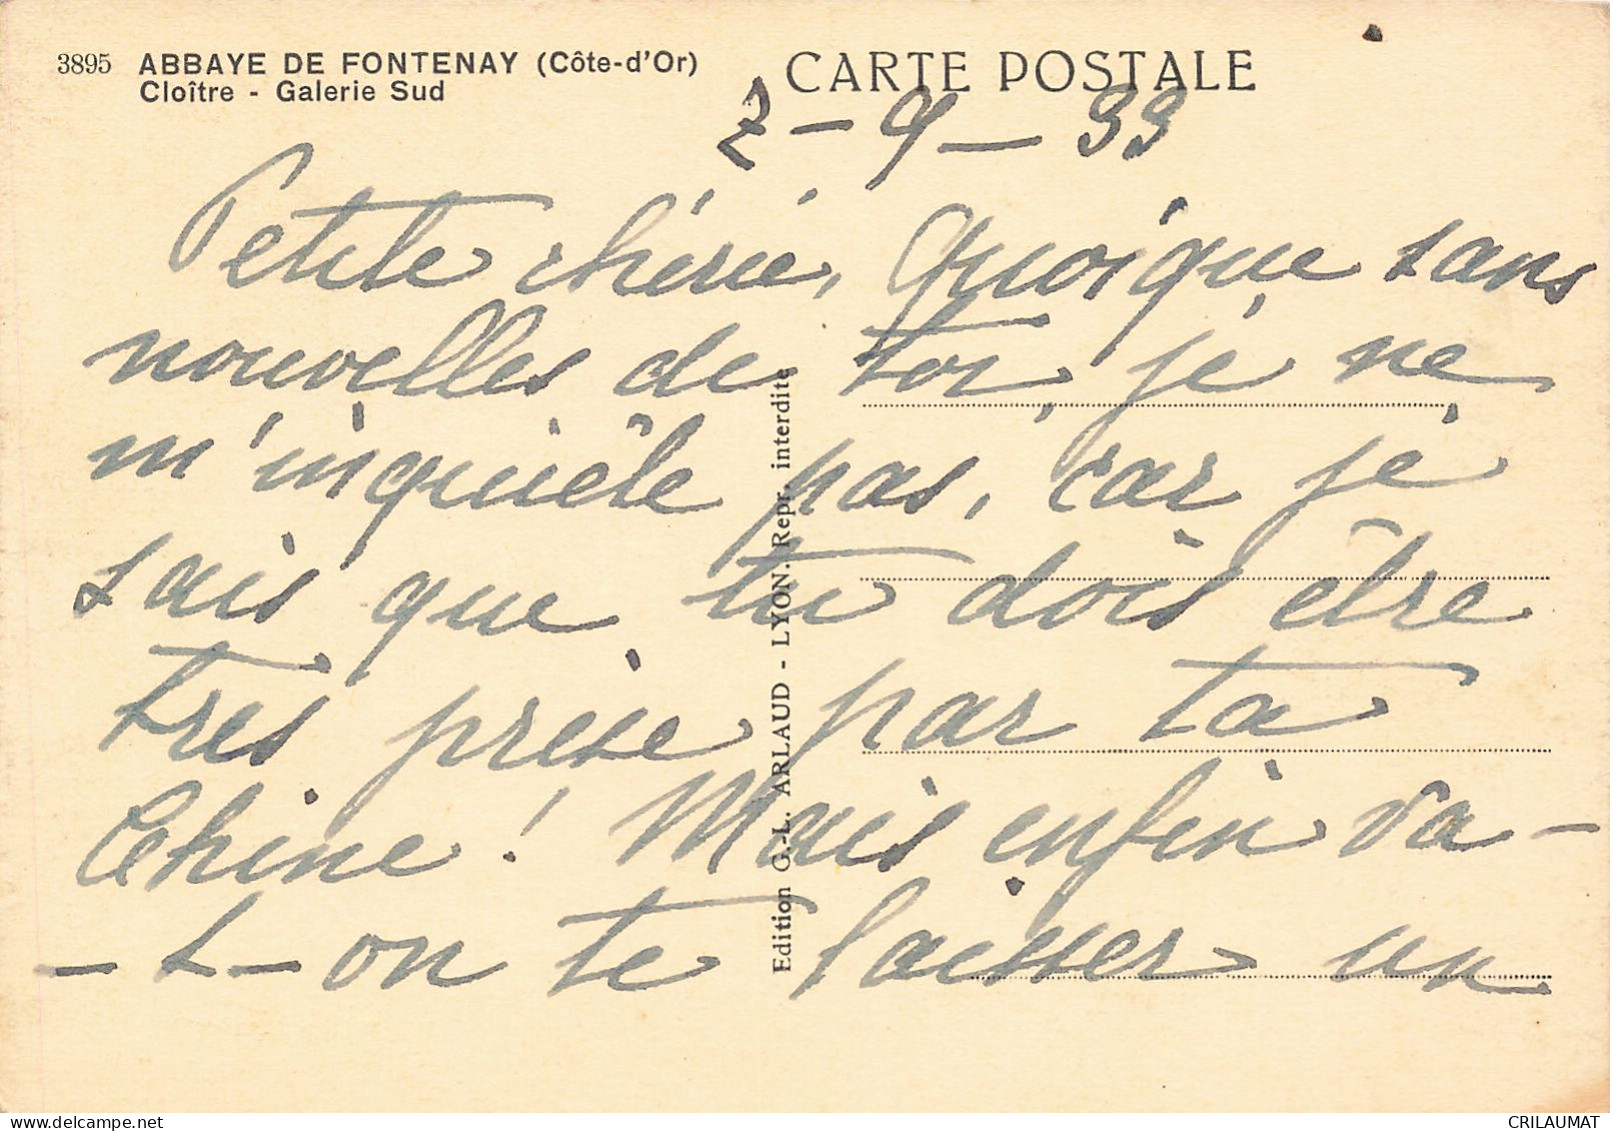 3895 ABBAYE DE FONTENAY (Côte-d'Or)
Cloître - Galerie Sud
CARTE POSTALE
2-9-33
Petite chérie, Quoique sans
nouvelles de toi, je ne
m'inquiète pas, car je
sais que tu dois être
très prise par ta
Chine ! Mais enfin va-
-t-on te laisser un
Edition G.-L. ARLAUD - LYON. Repr. interdite
delcampe.net
CRILAUMAT